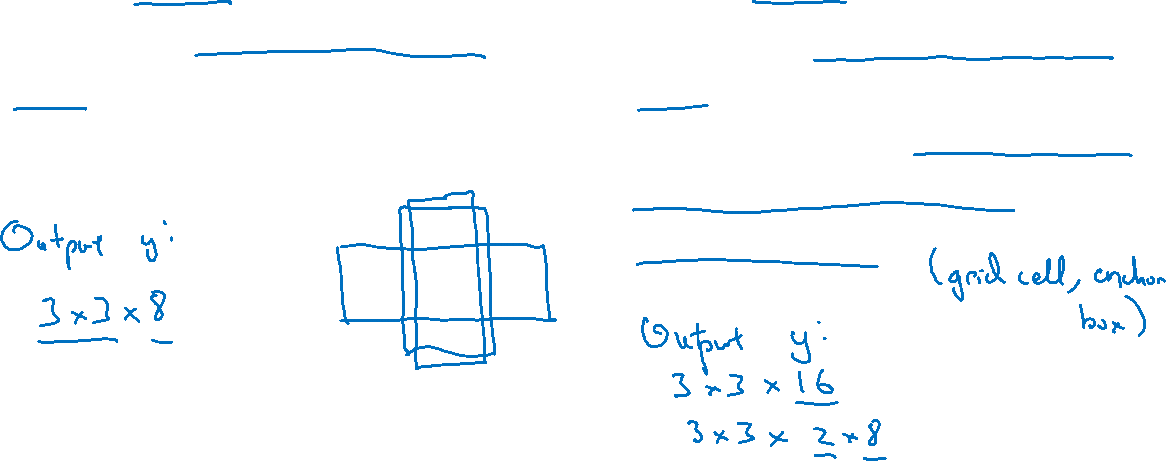 Output y:
3 × 3 × 8
(grid cell, anchor
box)
Output y:
3 × 3 × 16
3 × 3 × 2 × 8